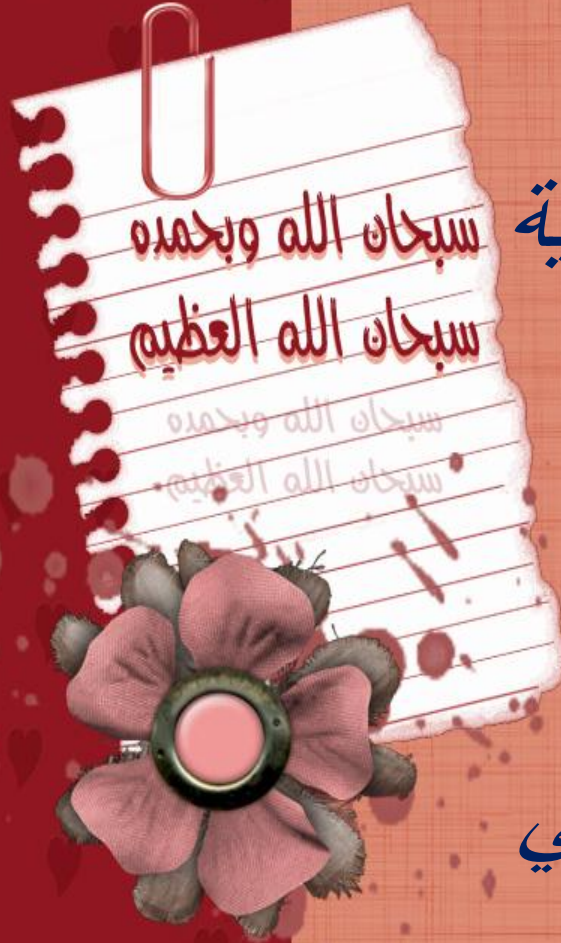 سبحان الله وبحمده
سبحان الله العظيم
سبحان الله وبحمده
سبحان الله العظيم